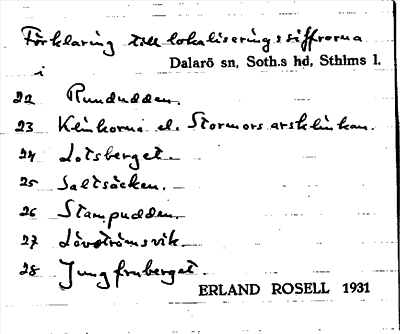 Förklaring till lokaliseringssiffrorna
i Dalarö sn, Soth.s hd, Sthlms l.
22 Rundudden.
23 Klinkorna el. Stormorsarsklinkan.
24 Lotsberget
25 Saltsäcken.
26 Stampudden
27 Lövströmsvik
28 Jungfruberget.
ERLAND ROSELL 1931